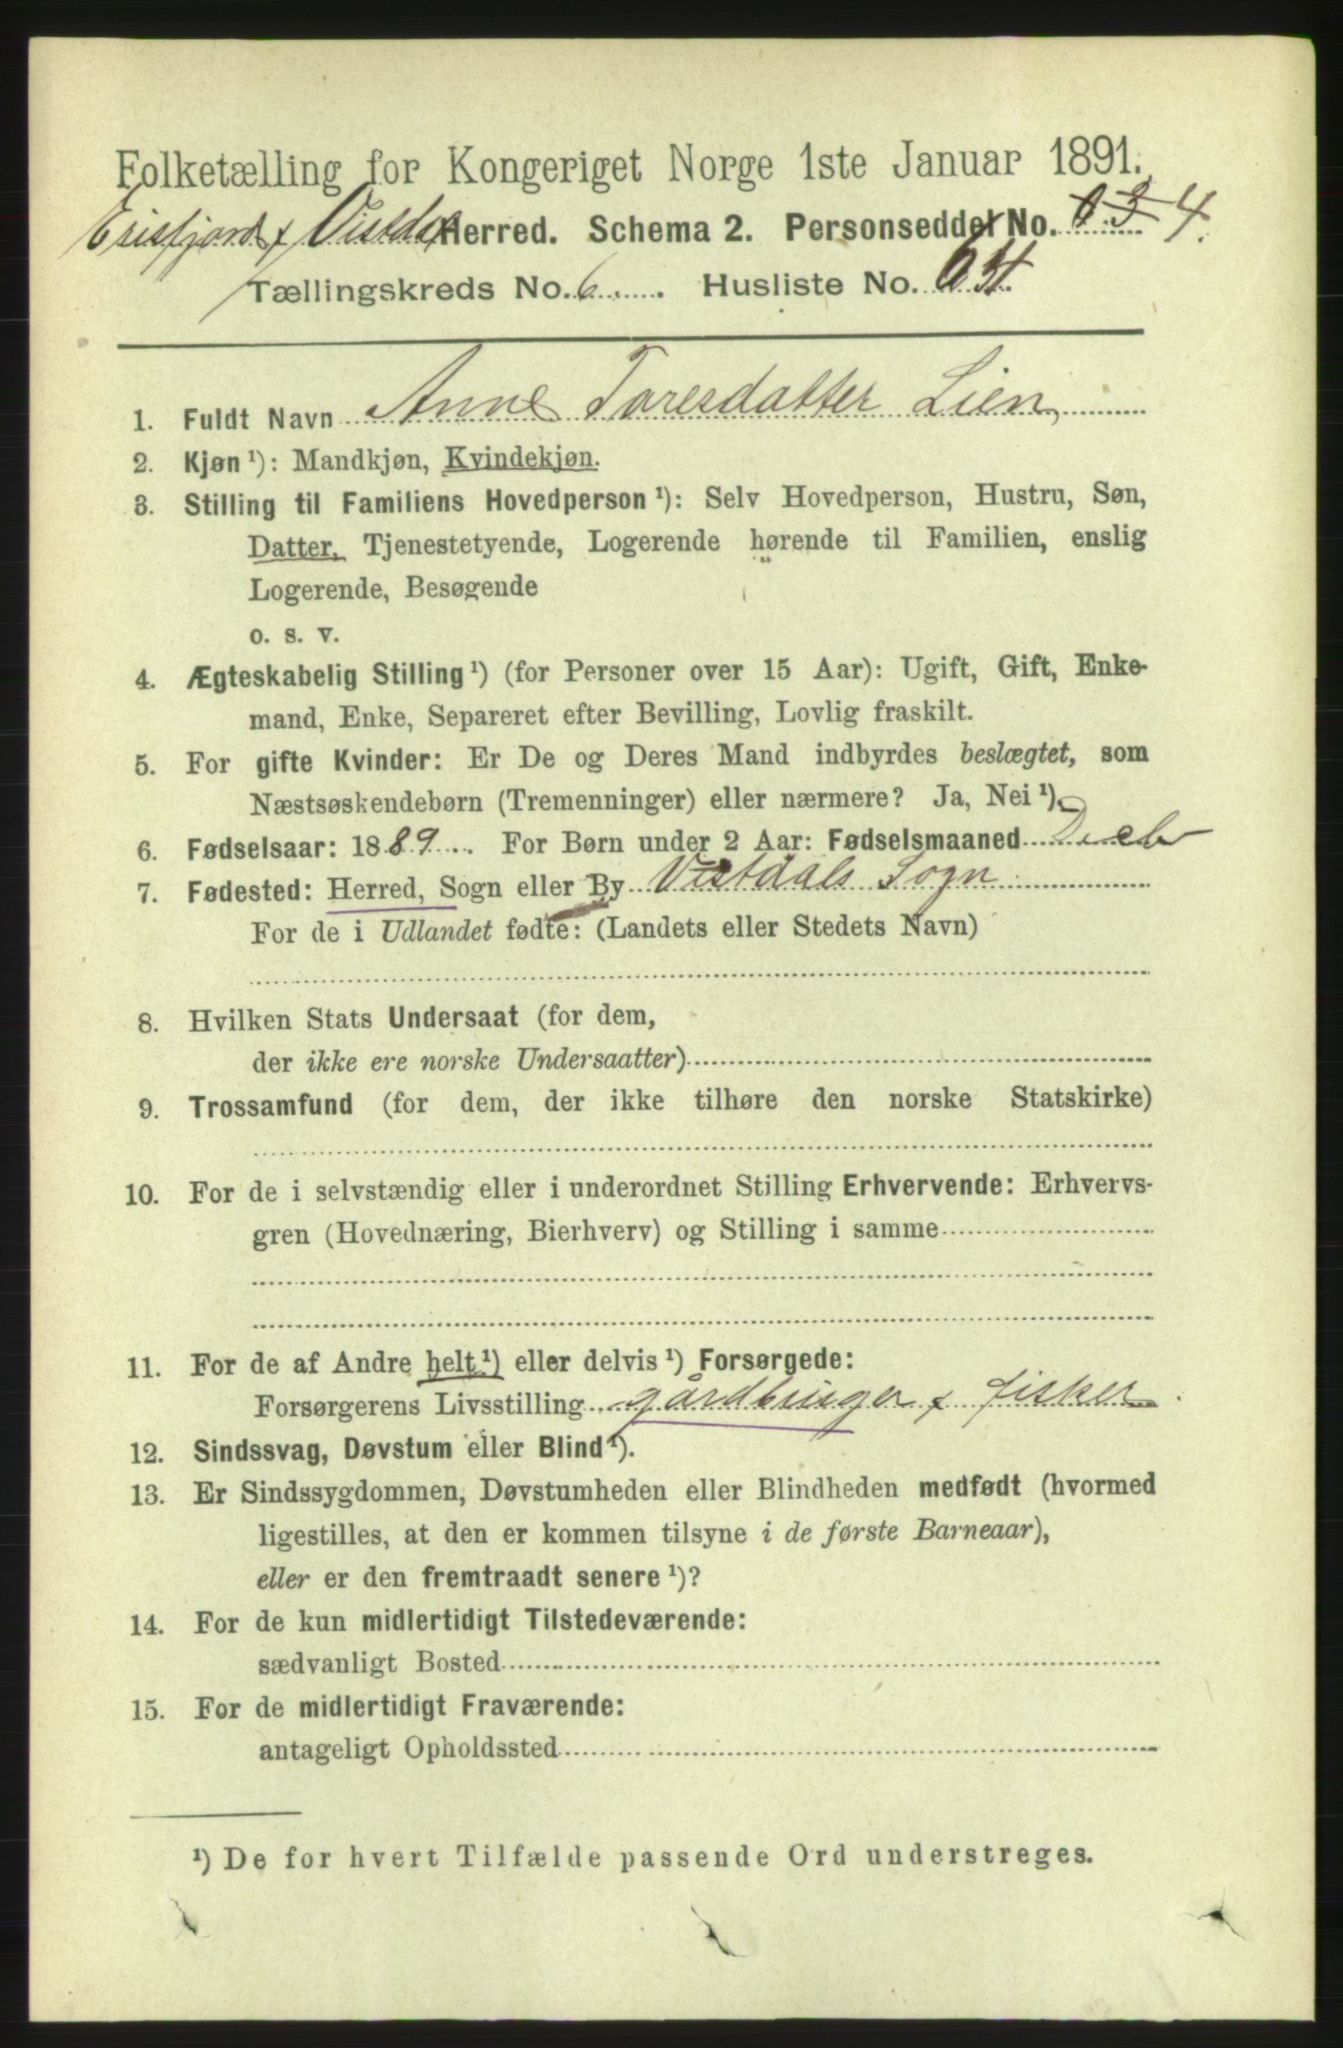 Folketælling for Kongeriget Norge 1ste Januar 1891.
Erisfjord & Vistdal Herred. Schema 2. Personseddel No. 4.
Tællingskreds No. 6. Husliste No.
1. Fuldt Navn Anne Toresdatter Lien,
2. Kjøn ¹): Mandkjøn, Kvindekjøn.
3. Stilling til Familiens Hovedperson ¹): Selv Hovedperson, Hustru, Søn,
Datter, Tjenestetyende, Logerende hørende til Familien, enslig
Logerende, Besøgende
o. s. v.
4. Ægteskabelig Stilling ¹) (for Personer over 15 Aar): Ugift, Gift, Enke-
mand, Enke, Separeret efter Bevilling, Lovlig fraskilt.
5. For gifte Kvinder: Er De og Deres Mand indbyrdes beslægtet, som
Næstsøskendebørn (Tremenninger) eller nærmere? Ja, Nei ¹).
6. Fødselsaar: 1889. For Børn under 2 Aar: Fødselsmaaned
7. Fødested: Herred, Sogn eller By Vistdals Sogn
For de i Udlandet fødte: (Landets eller Stedets Navn)
8. Hvilken Stats Undersaat (for dem,
der ikke ere norske Undersaatter)
9. Trossamfund (for dem, der ikke tilhøre den norske Statskirke)
10. For de i selvstændig eller i underordnet Stilling Erhvervende: Erhvervs-
gren (Hovednæring, Bierhverv) og Stilling i samme
11. For de af Andre helt ¹) eller delvis ¹) Forsørgede:
Forsørgerens Livsstilling gårdbruger & fisker
12. Sindssvag, Døvstum eller Blind ¹).
13. Er Sindssygdommen, Døvstumheden eller Blindheden medfødt (hvormed
ligestilles, at den er kommen tilsyne i de første Barneaar),
eller er den fremtraadt senere ¹)?
14. For de kun midlertidigt Tilstedeværende:
sædvanligt Bosted
15. For de midlertidigt Fraværende:
antageligt Opholdssted
¹) De for hvert Tilfælde passende Ord understreges.